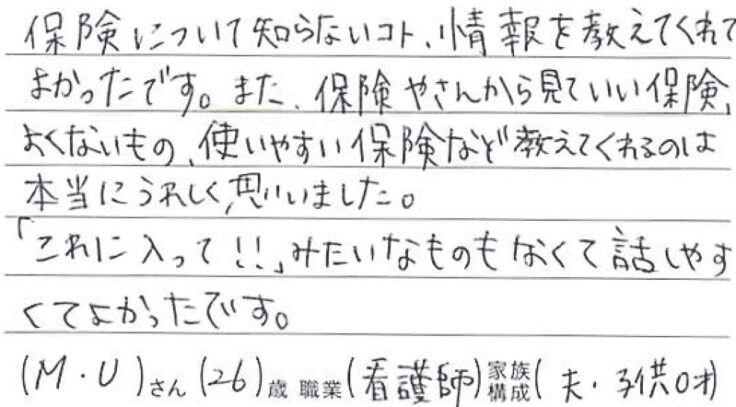 保険について知らないコト、情報を教えてくれて
よかったです。また、保険やさんから見ていい保険、
よくないもの、使いやすい保険など教えてくれるのは
本当にうれしく思いました。
「これに入って!!」みたいなものもなくて話しやす
くてよかったです。
(M・U)さん(26)歳 職業(看護師)家族構成(夫・子供0才)